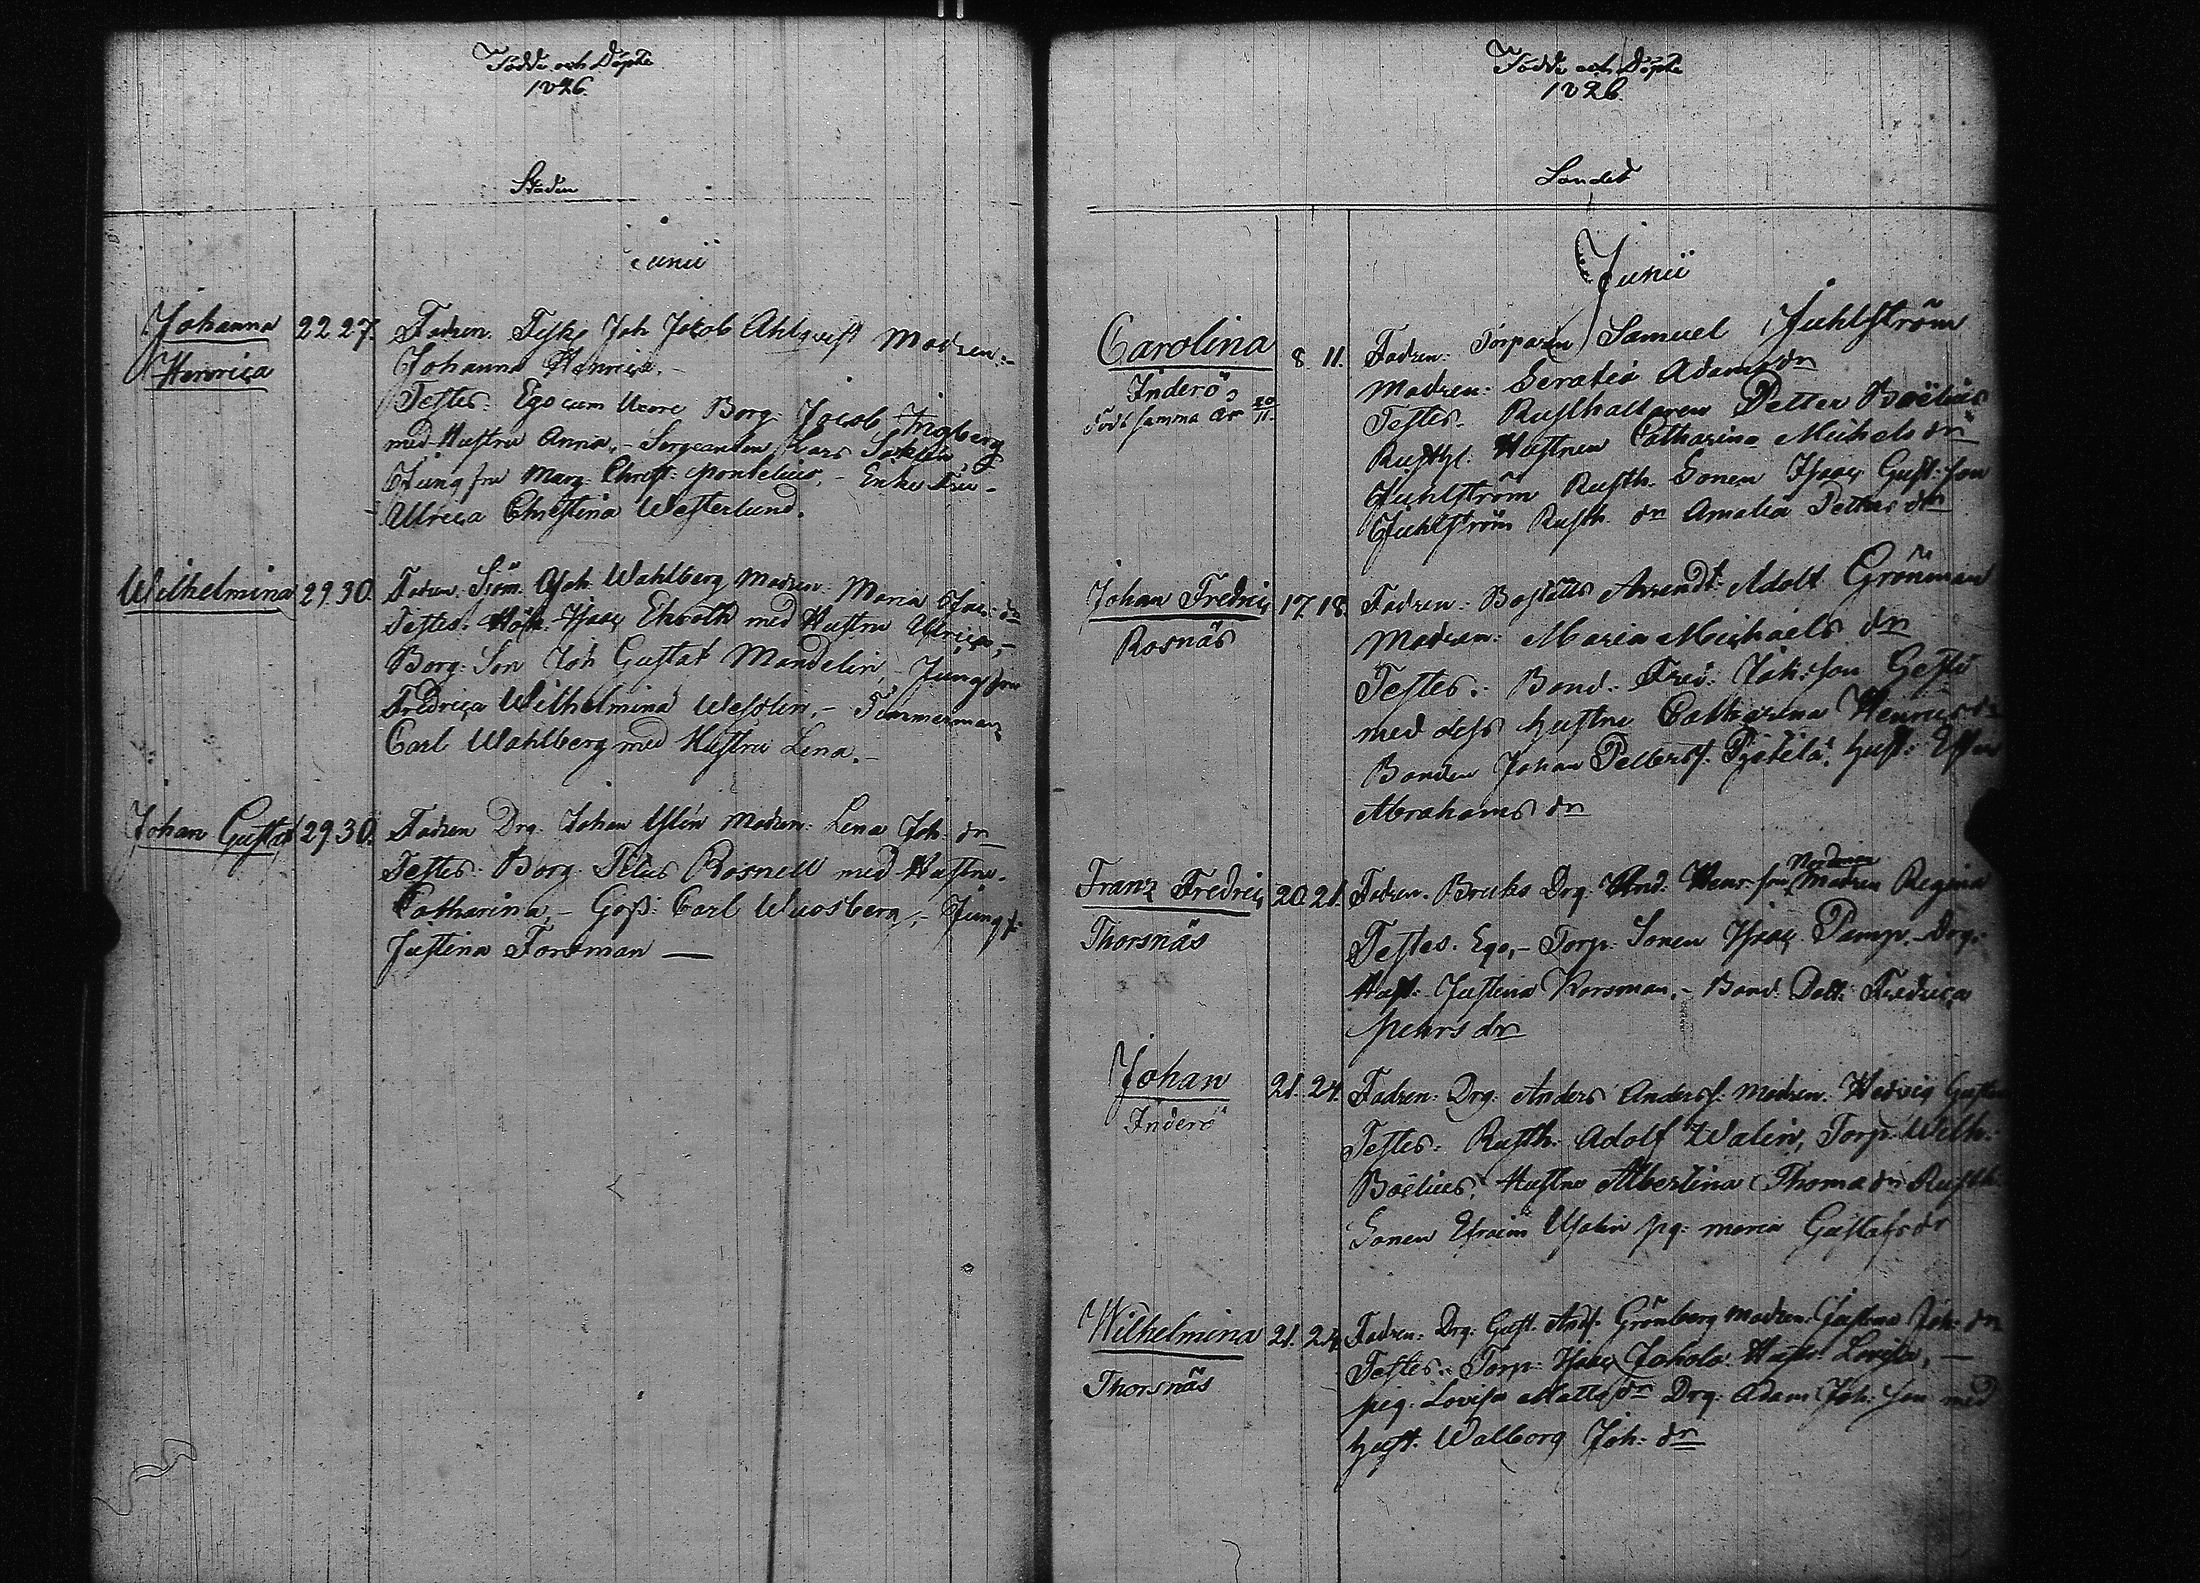 Födde och Döpte
1826.
Staden
Junii
Johanna 22 27. Fadren. Fisk. Joh Jacob Ahlqvist Modren:-
Henrica Johanna Henrica.-
Testes: Ego cum Uxore Borg: Jacob
med Hustru Anna,- Sergeanten Lars
Jungfru Marg. Christ: Pontelius,- Enke Fru-
Ulrica Christina Westerlund.
Wilhelmina 29. 30. Fadren. Sjöm. Joh. Wahlberg Modren: Maria Isacs dr
Testes. Isac Ekroth med Hustru Ulrica,-
Borg: Son Joh Gustaf Mandelin,- Jungfru
Fredrica Wilhelmina Wesslin,- Timmerman
Carl Wahlberg med Hustru Lena.-
Johan Gustaf 29. 30. Fadren Drg. Johan Modren: Lena Joh: dr
Testes. Borg. Rosnell med Hustru.
Catharina,- Goss: Carl,- Jungf:
Justina Forsman —
Födde och Döpte
1826.
Landet
Junii
Carolina 8. 11. Fadren: Torparen Samuel Juhlström
Inderö Modren: Serafia Adams dr
död samma år 20/11. Testes. Rusthallaren Petter Boëlius
Rusthl. Hustrun Catharina Michels dr
Juhlström Rusth. Sonen Isac Gust: son
Juhlström Rusth. dr Amalia Petters dr
Johan Fredric 17. 18. Fadren: Arrendt. Adolf Grönman
Rosnäs Modren: Maria Michaels dr
Testes.: Bond: Fred: Joh: son
med dess hustru Catharina Henrics dr
Bonden Johan Petterss. hust:
Abrahams dr
Franz Fredric 20. 21. Fadren. Bruks Drg. And: Henr: son Nordman Modren Regina
Thorsnäs Testes. Ego,- Torp: Sonen Isac Pamp.- Drg:
Hust. Justina Korsman.- Bond: Dott: Fredrica
Pehrs dr
Johan 21. 24. Fadren: Drg: Anders Anderss: Modren. Hedvig
Inderö Testes: Rusth. Adolf Walin, Torp: Wilh:
Boëlius, Hustru Albertina Thoma dr Rusth.
Sonen Efraim Walin pg: Maria Gustafs dr
Wilhelmina 21. 24. Fadren: Drg: Gust. Ands. Grönberg Modren: Justina Joh: dr
Thorsnäs Testes.: Torp: Isac Hustr: Lovisa, —
pig. Lovisa Matts dr Drg: Adam Joh: son med
hust. Walborg Joh: dr